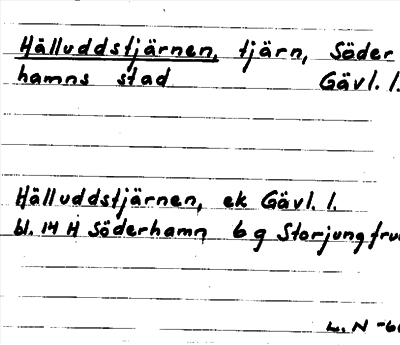 Hälluddstjärnen, tjärn, Söder
hamns stad Gävl. l.
Hälluddstjärnen, ek Gävl. l.
bl. 14 H Söderhamn 6 g Storjungfru
L. N -6